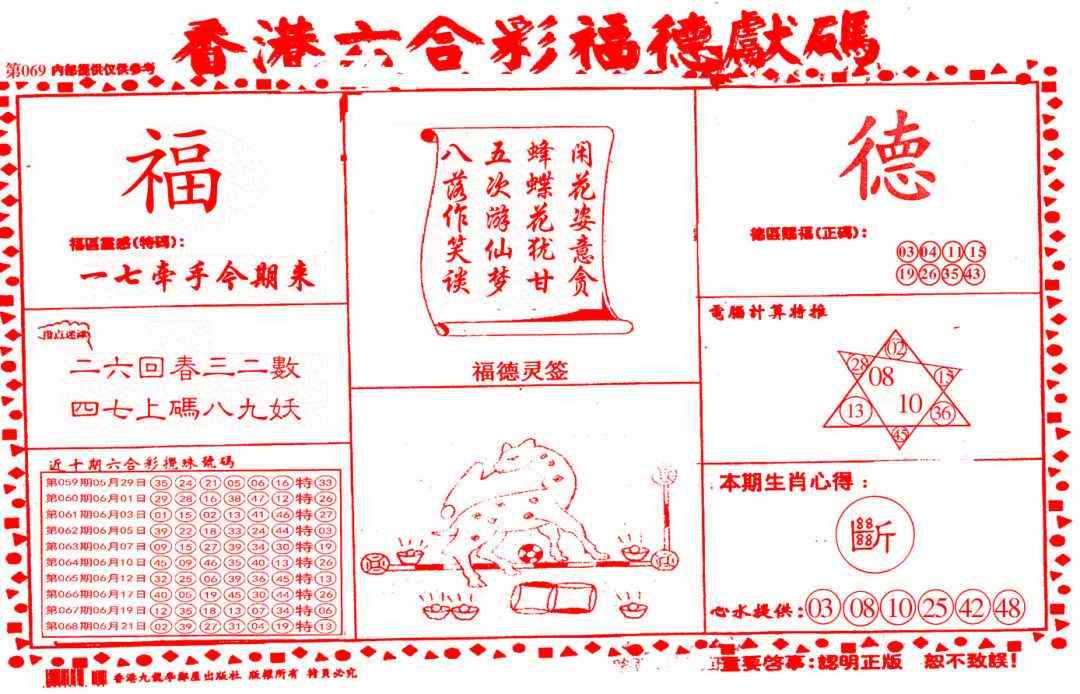 香港六合彩福德獻碼
第069 内部提供仅供参考
福
福區靈感(特碼):
一七牵手今期来
二六回春三二數
四七上碼八九妖
近十期六合彩攪珠號碼
第059期05月29日 35 24 21 05 06 16 特 33
第060期06月01日 29 28 16 38 47 12 特 26
第061期06月03日 01 15 02 13 41 46 特 27
第062期06月05日 39 22 18 33 24 44 特 03
第063期06月07日 09 15 27 39 34 30 特 19
第064期06月10日 45 09 46 35 40 13 特 26
第065期06月12日 32 25 06 39 36 45 特 13
第066期06月17日 40 05 19 45 30 44 特 26
第067期06月19日 12 35 18 13 07 34 特 06
第068期06月21日 02 39 27 31 04 19 特 13
闲花姿意贪
蜂蝶花犹甘
五次游仙梦
八落作笑谈
福德灵签
德
德區賜福(正碼):
03 04 11 15
19 26 35 43
電腦計算特推
02
28 08 15
13 10 36
45
本期生肖心得:
斷
心水提供: 03 08 10 25 42 48
香港九龍學鄰屋出版社 版權所有 持員必究
重要啓事:認明正版 恕不致誤!